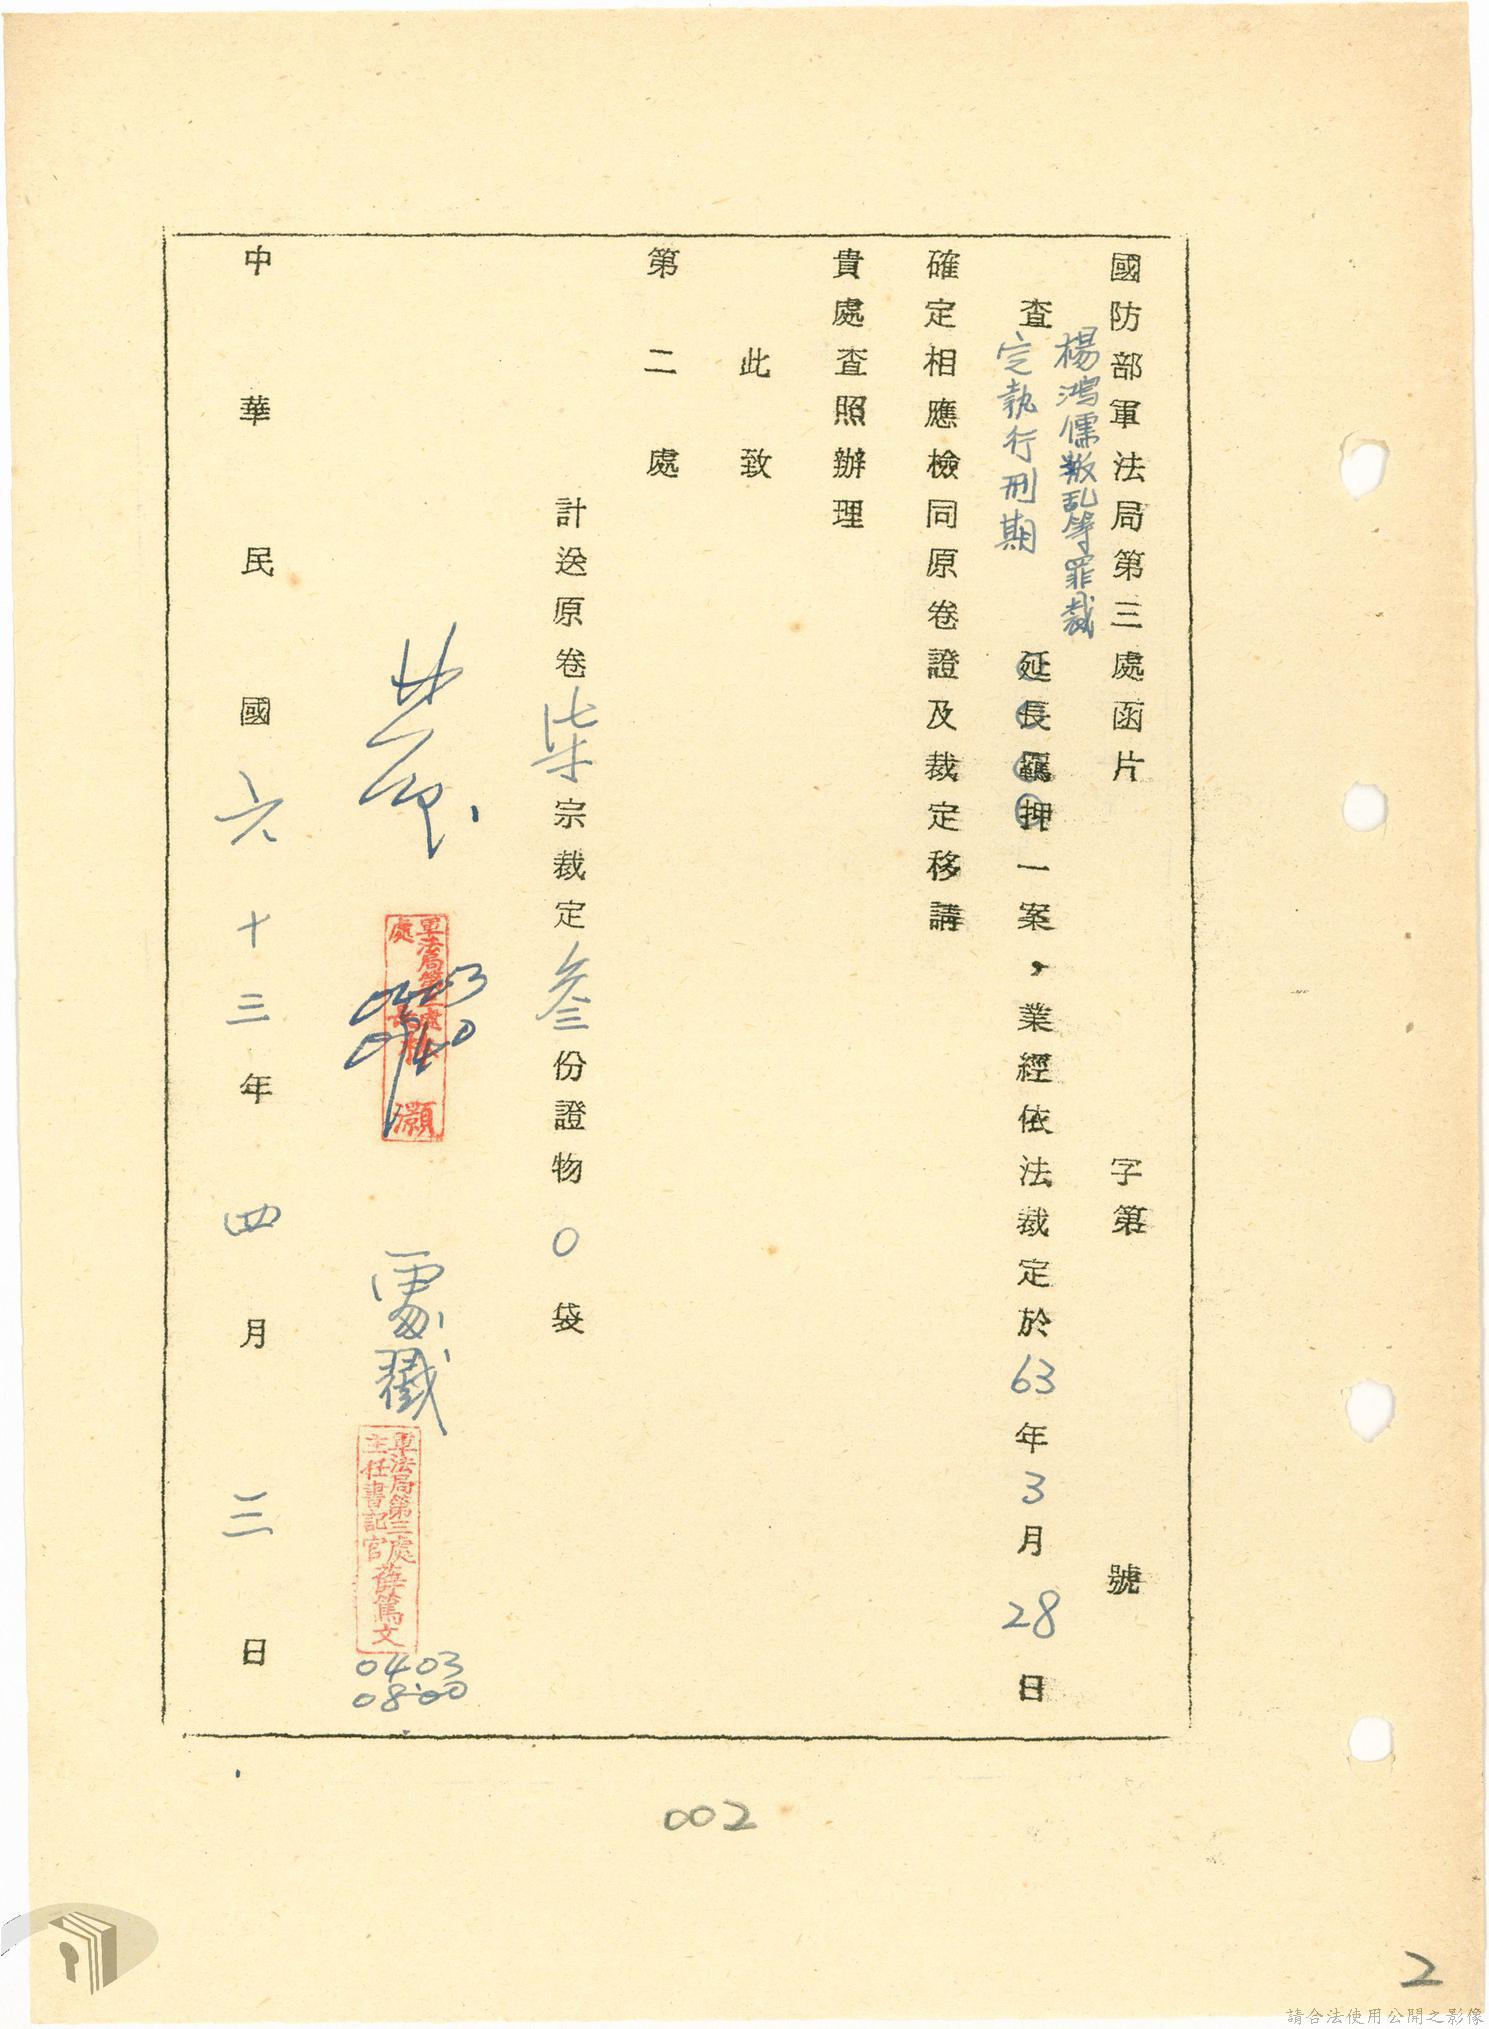 國防部軍法局第三處函片 字第 號
查楊鴻儒叛乱等罪裁定執行刑期延長羈押一案，業經依法裁定於63年3月28日
確定相應檢同原卷證及裁定移請
貴處查照辦理
此致
第二處
計送原卷柒宗裁定叁份證物0袋
軍法局第
處
灝
0403
0940
處戳
軍法局第三處
主任書記官薛篤文
0403
0800
中華民國六十三年四月三日
002
2
請合法使用公開之影像